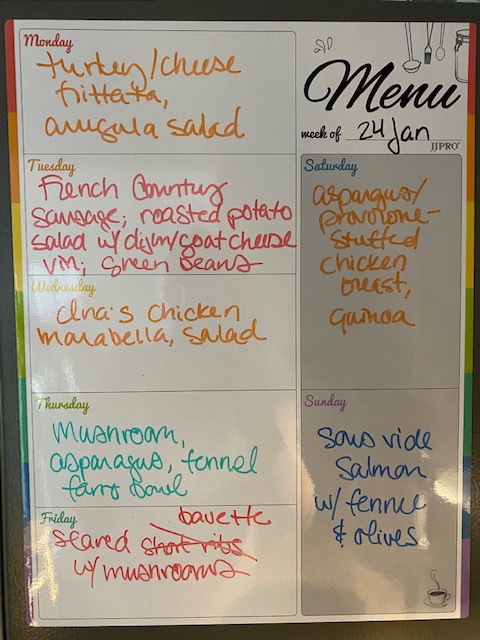 Monday
turkey/cheese
frittata,
arugula salad
Menu
week of 24 Jan
JJPRO
Tuesday
French Country
sausage; roasted potato
salad w/ dijon/goat cheese
vin; green beans
Wednesday
Ina's chicken
marabella, salad
Thursday
Mushroom,
asparagus, fennel
farro bowl
Friday
bavette
seared short ribs
w/ mushrooms
Saturday
asparagus/
provolone-
stuffed
chicken
breast,
quinoa
Sunday
sous vide
salmon
w/ fennel
& olives